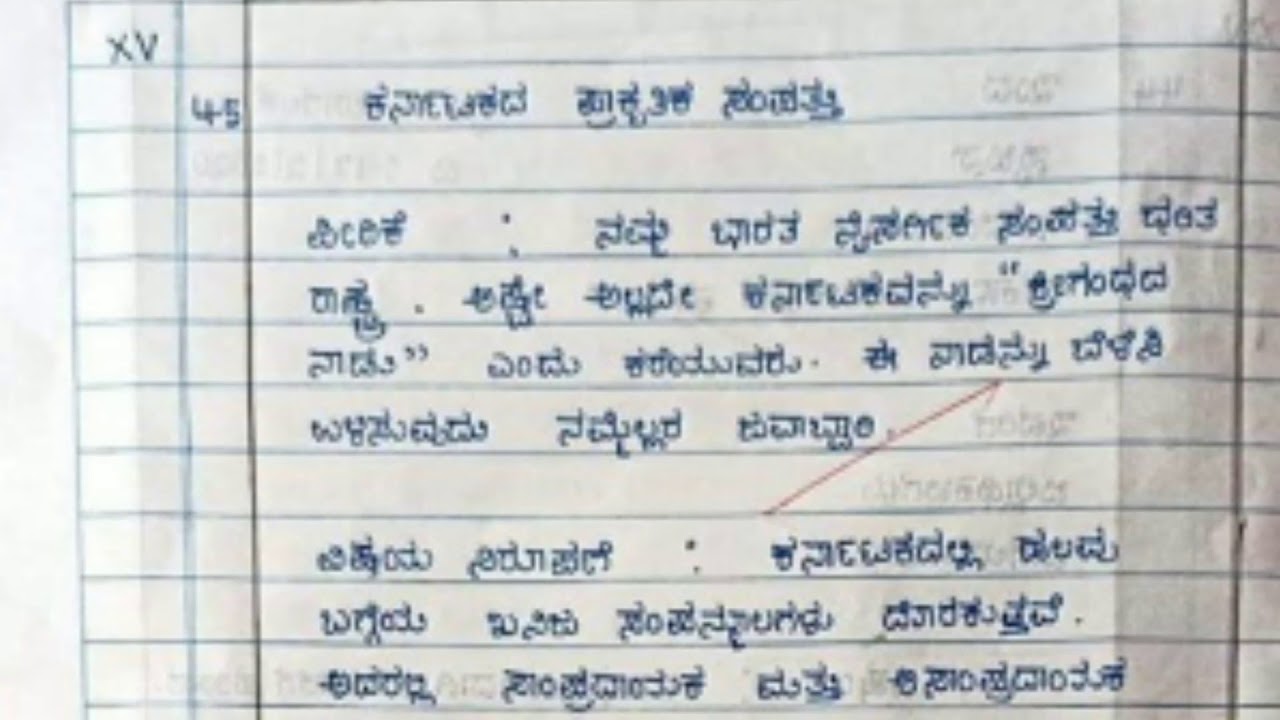 XV
45 ಕರ್ನಾಟಕದ ಪ್ರಾಕೃತಿಕ ಸಂಪತ್ತು
ಪೀಠಿಕೆ : ನಮ್ಮ ಭಾರತ ನೈಸರ್ಗಿಕ ಸಂಪತ್ತು ಭರಿತ
ರಾಷ್ಟ್ರ. ಅಷ್ಟೇ ಅಲ್ಲದೇ ಕರ್ನಾಟಕವನ್ನು "ಶ್ರೀಗಂಧದ
ನಾಡು" ಎಂದು ಕರೆಯುವರು. ಈ ನಾಡನ್ನು ಬೆಳೆಸಿ
ಬಳಸುವುದು ನಮ್ಮೆಲ್ಲರ ಜವಾಬ್ದಾರಿ.
ವಿಷಯ ನಿರೂಪಣೆ : ಕರ್ನಾಟಕದಲ್ಲಿ ಹಲವು
ಬಗ್ಗೆಯ ಖನಿಜ ಸಂಪನ್ಮೂಲಗಳು ದೊರಕುತ್ತವೆ.
ಅದರಲ್ಲಿ ಸಾಂಪ್ರದಾಯಕ ಮತ್ತು ಅಸಾಂಪ್ರದಾಯಕ